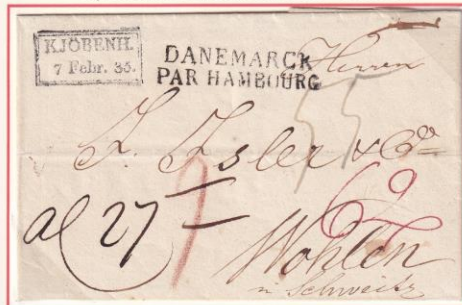 KJÖBENH.
7 Febr. 35.
DANEMARCK
PAR HAMBOURG
Herren
J. Isler & Co
55
69
al 27
Wohlen
in Schweitz